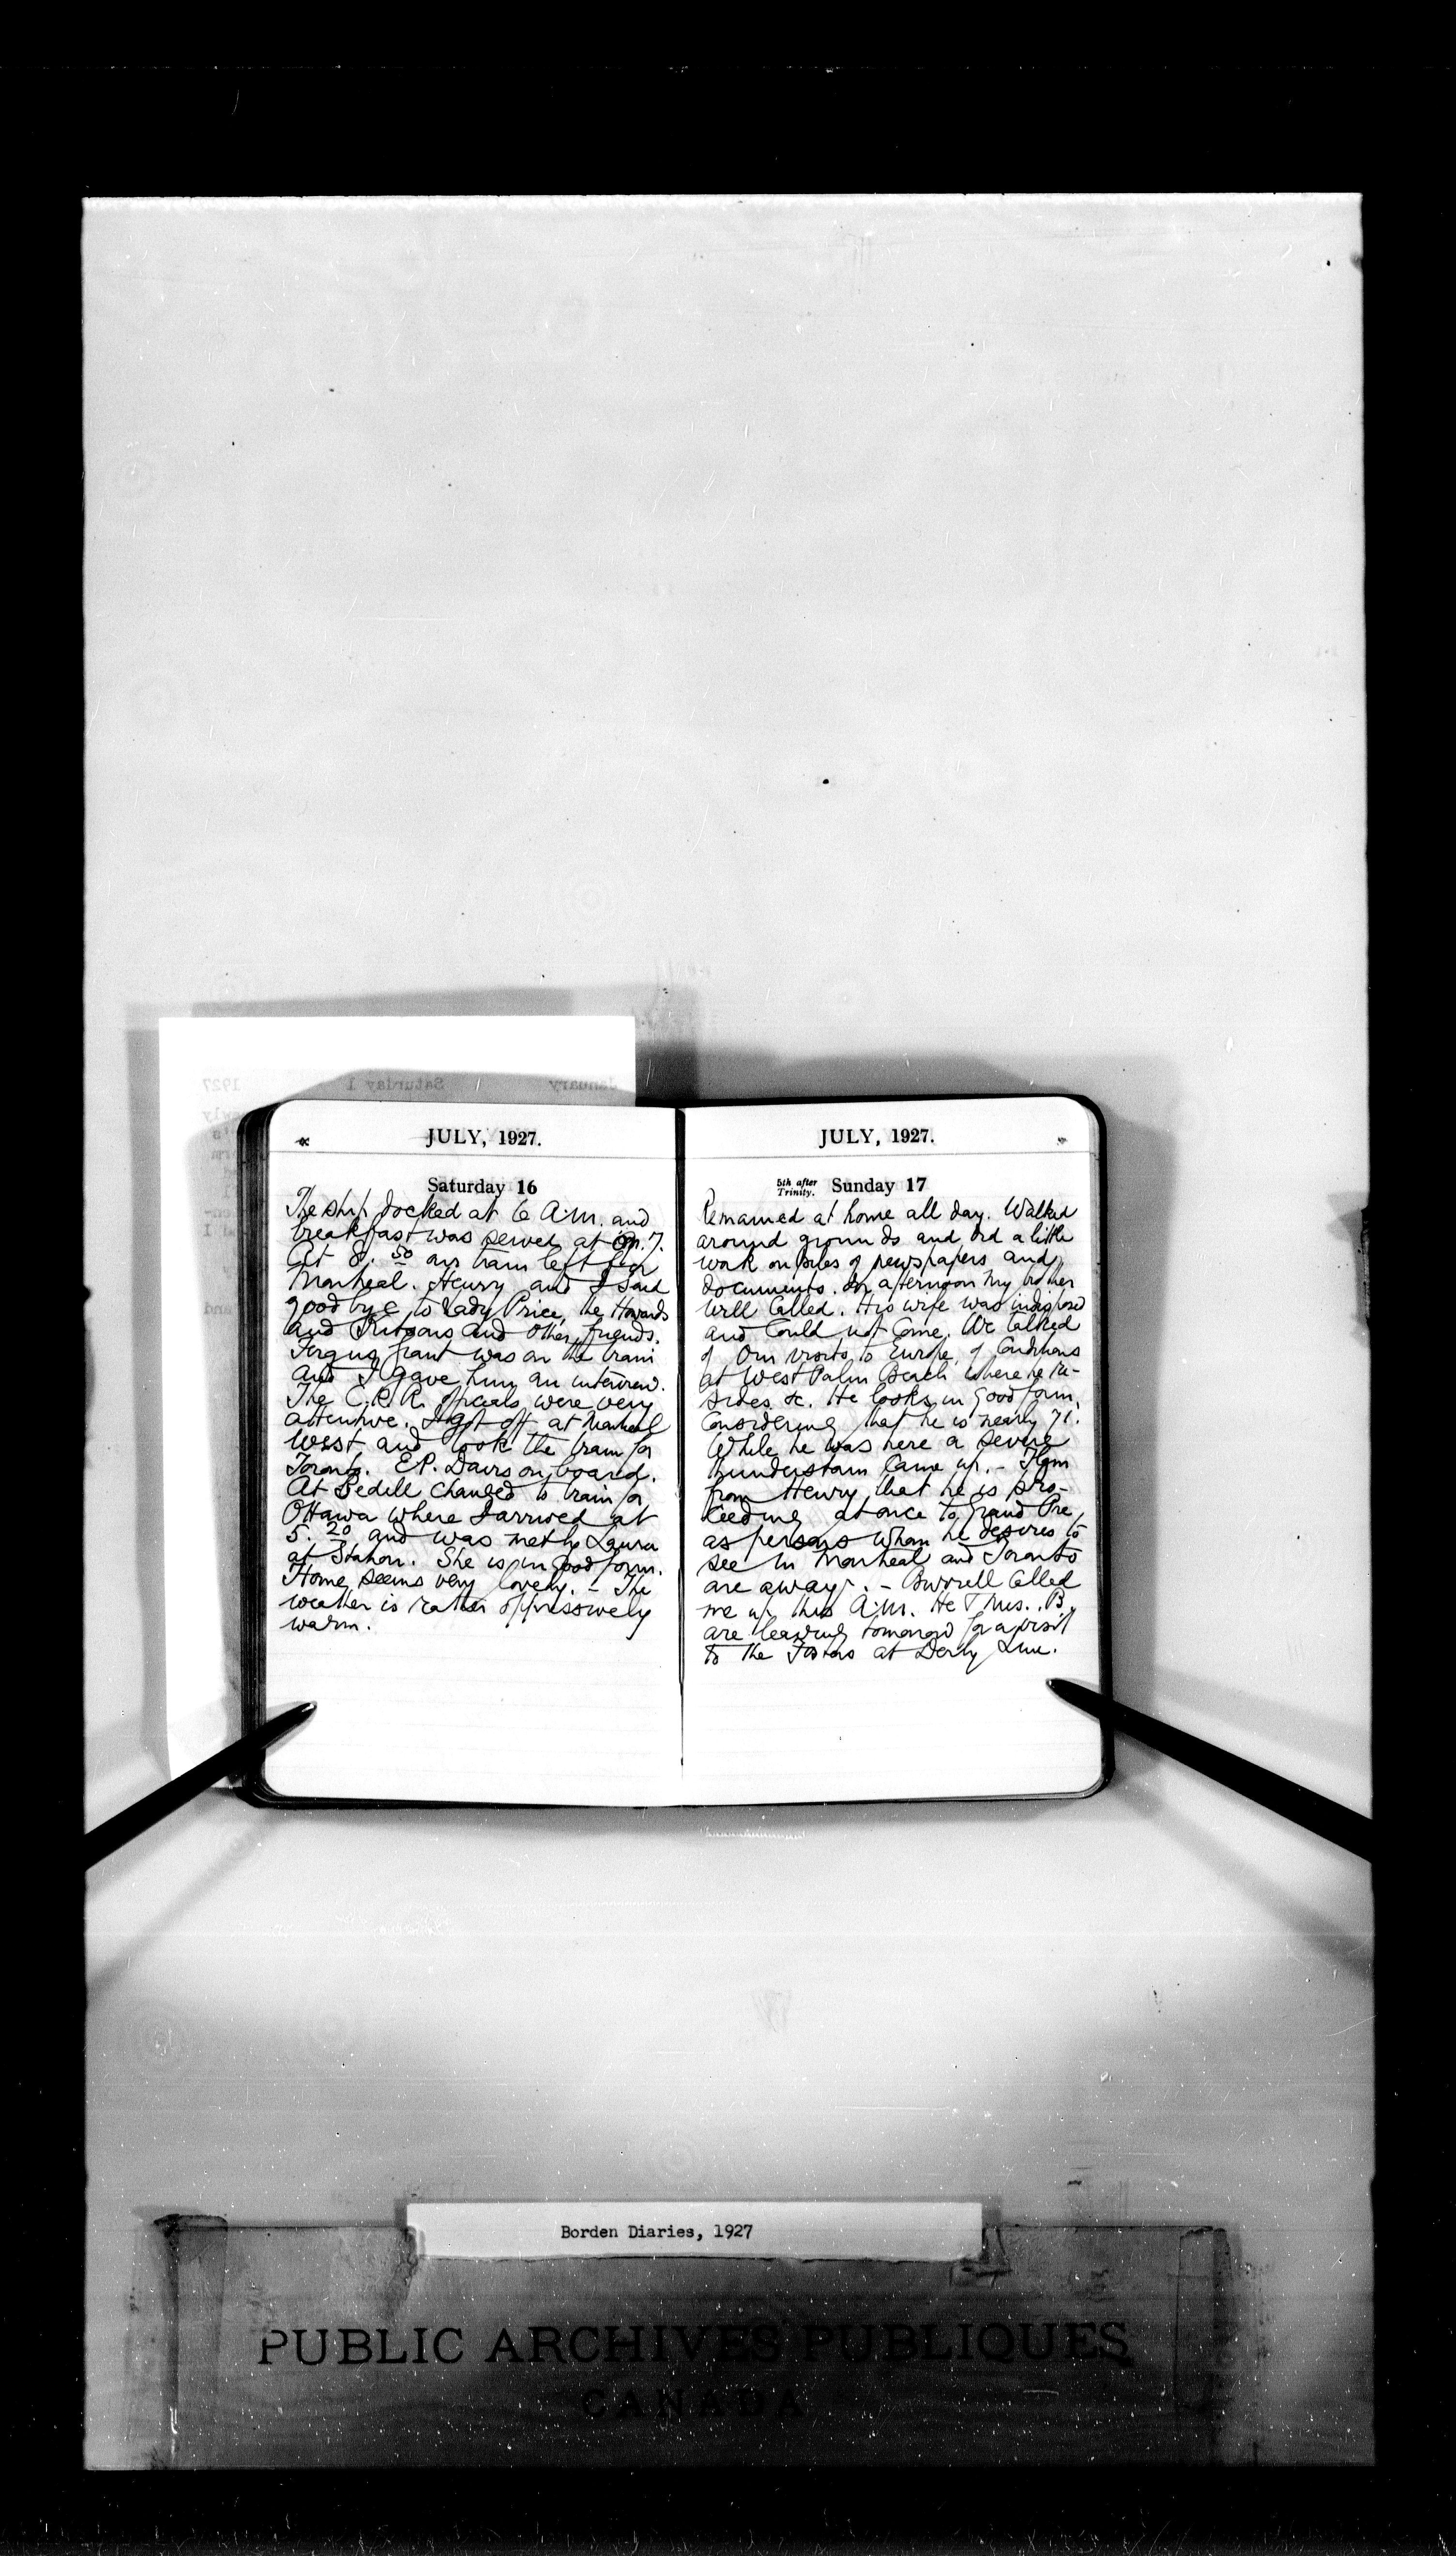 JULY, 1927.
Saturday 16
The ship docked at 6 A.M. and
breakfast was served at 7.
At 8.50 our train left for
Montreal. Henry and I said
goodbye to Lady Price, the Howards
and and other friends.
Fergus Grant was on the train
and I gave him an interview.
The C.P.R. officials were very
attentive. I got off at Montreal
West and took the train for
Toronto. E.P. Davis on board.
At Bedell changed to train for
Ottawa where I arrived at
5.20 and was met by Laura
at Station. She is in good form.
Home seems very lovely. - The
weather is rather oppressively
warm.
JULY, 1927.
5th after
Trinity.
Sunday 17
Remained at home all day. Walked
around grounds and did a little
work on piles of newspapers and
documents. In afternoon my brother
Will called. His wife was indisposed
and could not come. We talked
of our visits to Europe, of conditions
at West Palm Beach where he re-
sides &c. He looks in good form,
considering that he is nearly 71.
While he was here a severe
thunderstorm came up. -
from Henry that he is pro-
ceeding at once to Grand Pre,
as persons whom he desires to
see in Montreal and Toronto
are away. - Burrell called
me up this A.M. He & Mrs. B.
are leaving tomorrow for a visit
to the Fosters at Derby Line.
Borden Diaries, 1927
PUBLIC ARCHIVES PUBLIQUES
CANADA